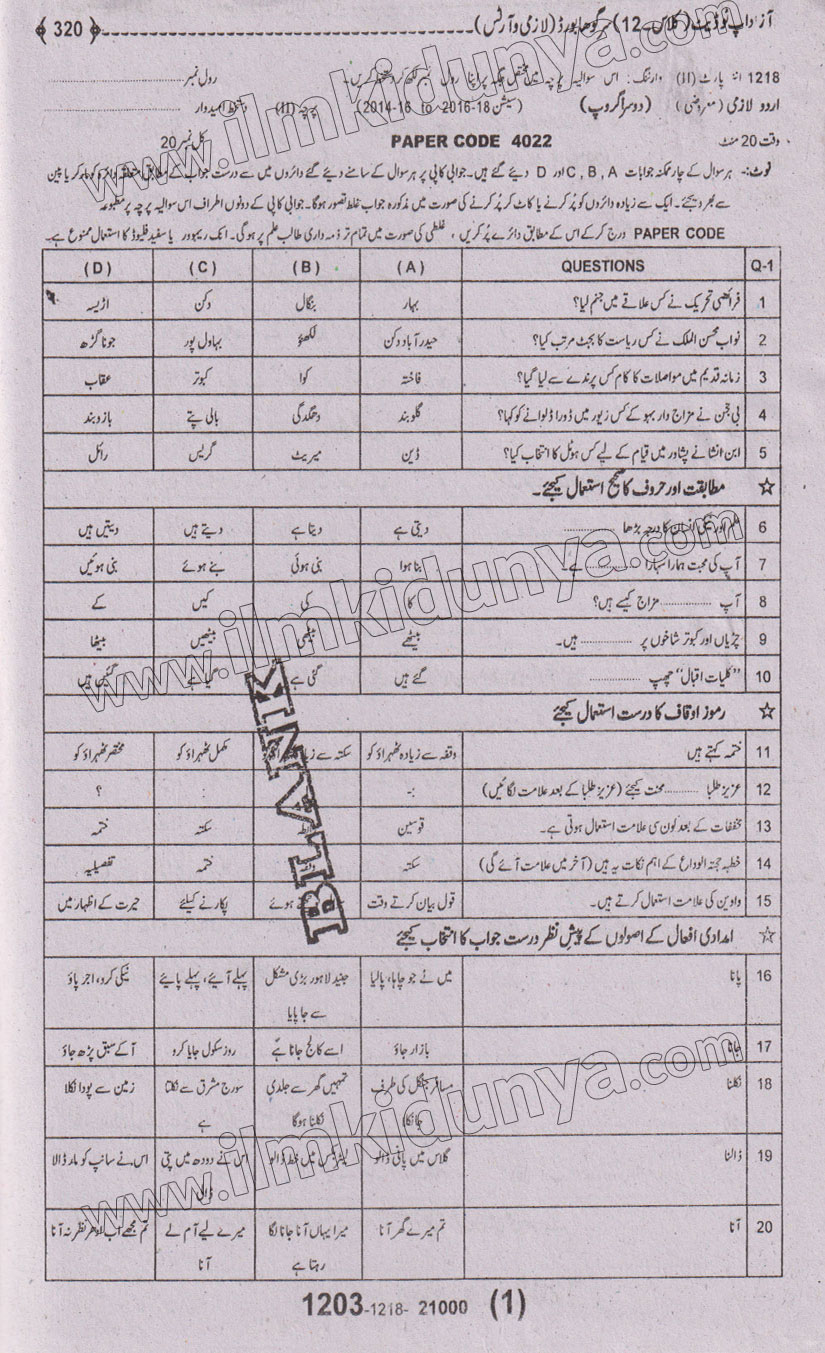 آزاد اپ ٹو ڈیٹ (کلاس ۔ 12) گوجرانوالہ بورڈ (لازمی و آرٹس) ﴾ 320 ﴿
1218 انٹر پارٹ (II) وارننگ : اس سوالیہ پرچہ میں مختص جگہ پر اپنا رول نمبر لکھ کر دستخط کریں۔ رول نمبر
اردو لازمی (معروضی) (دوسرا گروپ) (سیشن 18-2016 to 2014-16) پرچہ (II) دستخط امیدوار
وقت 20 منٹ PAPER CODE 4022 کل نمبر 20
نوٹ:۔ ہر سوال کے چار ممکنہ جوابات A ,B ,C اور D دیئے گئے ہیں۔ جوابی کاپی پر ہر سوال کے سامنے دیئے گئے دائروں میں سے درست جواب کے مطابق متعلقہ دائرہ کو مارکر یا پین
سے بھر دیجئے۔ ایک سے زیادہ دائروں کو پُر کرنے یا کاٹ کر پُر کرنے کی صورت میں مذکورہ جواب غلط تصور ہوگا۔ جوابی کاپی کے دونوں اطراف اس سوالیہ پرچہ پر مطبوعہ
PAPER CODE درج کر کے اس کے مطابق دائرے پُر کریں ، غلطی کی صورت میں تمام تر ذمہ داری طالب علم پر ہوگی۔ انک ریموور یا سفید فلیوڈ کا استعمال ممنوع ہے۔
Q-1 QUESTIONS (A) (B) (C) (D)
1 فرائضی تحریک نے کس علاقے میں جنم لیا؟ بہار بنگال دکن اڑیسہ
2 نواب محسن الملک نے کس ریاست کا بجٹ مرتب کیا؟ حیدر آباد دکن لکھنؤ بہاول پور جونا گڑھ
3 زمانہ قدیم میں مواصلات کا کام کس پرندے سے لیا گیا؟ فاختہ کوا کبوتر عقاب
4 بی جمن نے مزاج دار بہو کے کس زیور میں ڈورا ڈلوانے کو کہا؟ گلوبند دھگدگی بالی پتے بازو بند
5 ابن انشا نے پشاور میں قیام کے لیے کس ہوٹل کا انتخاب کیا؟ ڈین میریٹ گریس رائل
☆ مطابقت اور حروف کا صحیح استعمال کیجئے۔
6 علم اور نیکی انسان کا درجہ بڑھا ........... دیتی ہے دیتا ہے دیتے ہیں دیتیں ہیں
7 آپ کی محبت ہمارا سہارا ........... ہے۔ بنا ہوا بنی ہوئی بنے ہوئے بنی ہوئیں
8 آپ ........... مزاج کیسے ہیں؟ کا کی کیں کے
9 چڑیاں اور کبوتر شاخوں پر ........... ہیں۔ بیٹھے بیٹھی بیٹھیں بیٹھا
10 ”کلیات اقبال“ چھپ ........... گئے ہیں گئی ہے گیا ہے گئیں ہیں
☆ رموز اوقاف کا درست استعمال کیجئے
11 ختمہ کہتے ہیں وقفہ سے زیادہ ٹھہراؤ کو سکتہ سے مکمل ٹھہراؤ کو مختصر ٹھہراؤ کو
12 عزیز طلبا ........... محنت کیجئے (عزیز طلبا کے بعد علامت لگائیں) :- : ؟
13 مخففات کے بعد کون سی علامت استعمال ہوتی ہے۔ قوسین سکتہ ختمہ
14 خطبہ حجتہ الوداع کے اہم نکات یہ ہیں (آخر میں علامت آئے گی) سکتہ ختمہ تفصیلیہ
15 واوین کی علامت استعمال کرتے ہیں۔ قول بیان کرتے وقت ہوئے پکارنے کیلئے حیرت کے اظہار میں
☆ امدادی افعال کے اصولوں کے پیش نظر درست جواب کا انتخاب کیجئے
16 پانا میں نے جو چاہا، پالیا جنید لاہور بڑی مشکل سے جا پایا پہلے آئیے، پہلے پائیے نیکی کرو، اجر پاؤ
17 جانا بازار جاؤ اسے کالج جانا ہے روز سکول جایا کرو آکے سبق پڑھ جاؤ
18 نکلنا مسافر جنگل کی طرف جا نکلا تمہیں گھر سے جلدی نکلنا ہوگا سورج مشرق سے نکلتا ہے زمین سے پودا نکلا
19 ڈالنا گلاس میں پانی ڈالو لیٹر بکس میں خط ڈالو اس نے دودھ میں پتی ڈالی اس نے سانپ کو مار ڈالا
20 آنا تم میرے گھر آنا میرا یہاں آنا جانا لگا رہتا ہے میرے لیے آم لے آنا تم مجھے اب ادھر نظر نہ آنا
1203-1218- 21000 (1)
www.ilmkidunya.com
www.ilmkidunya.com
www.ilmkidunya.com
BLANK